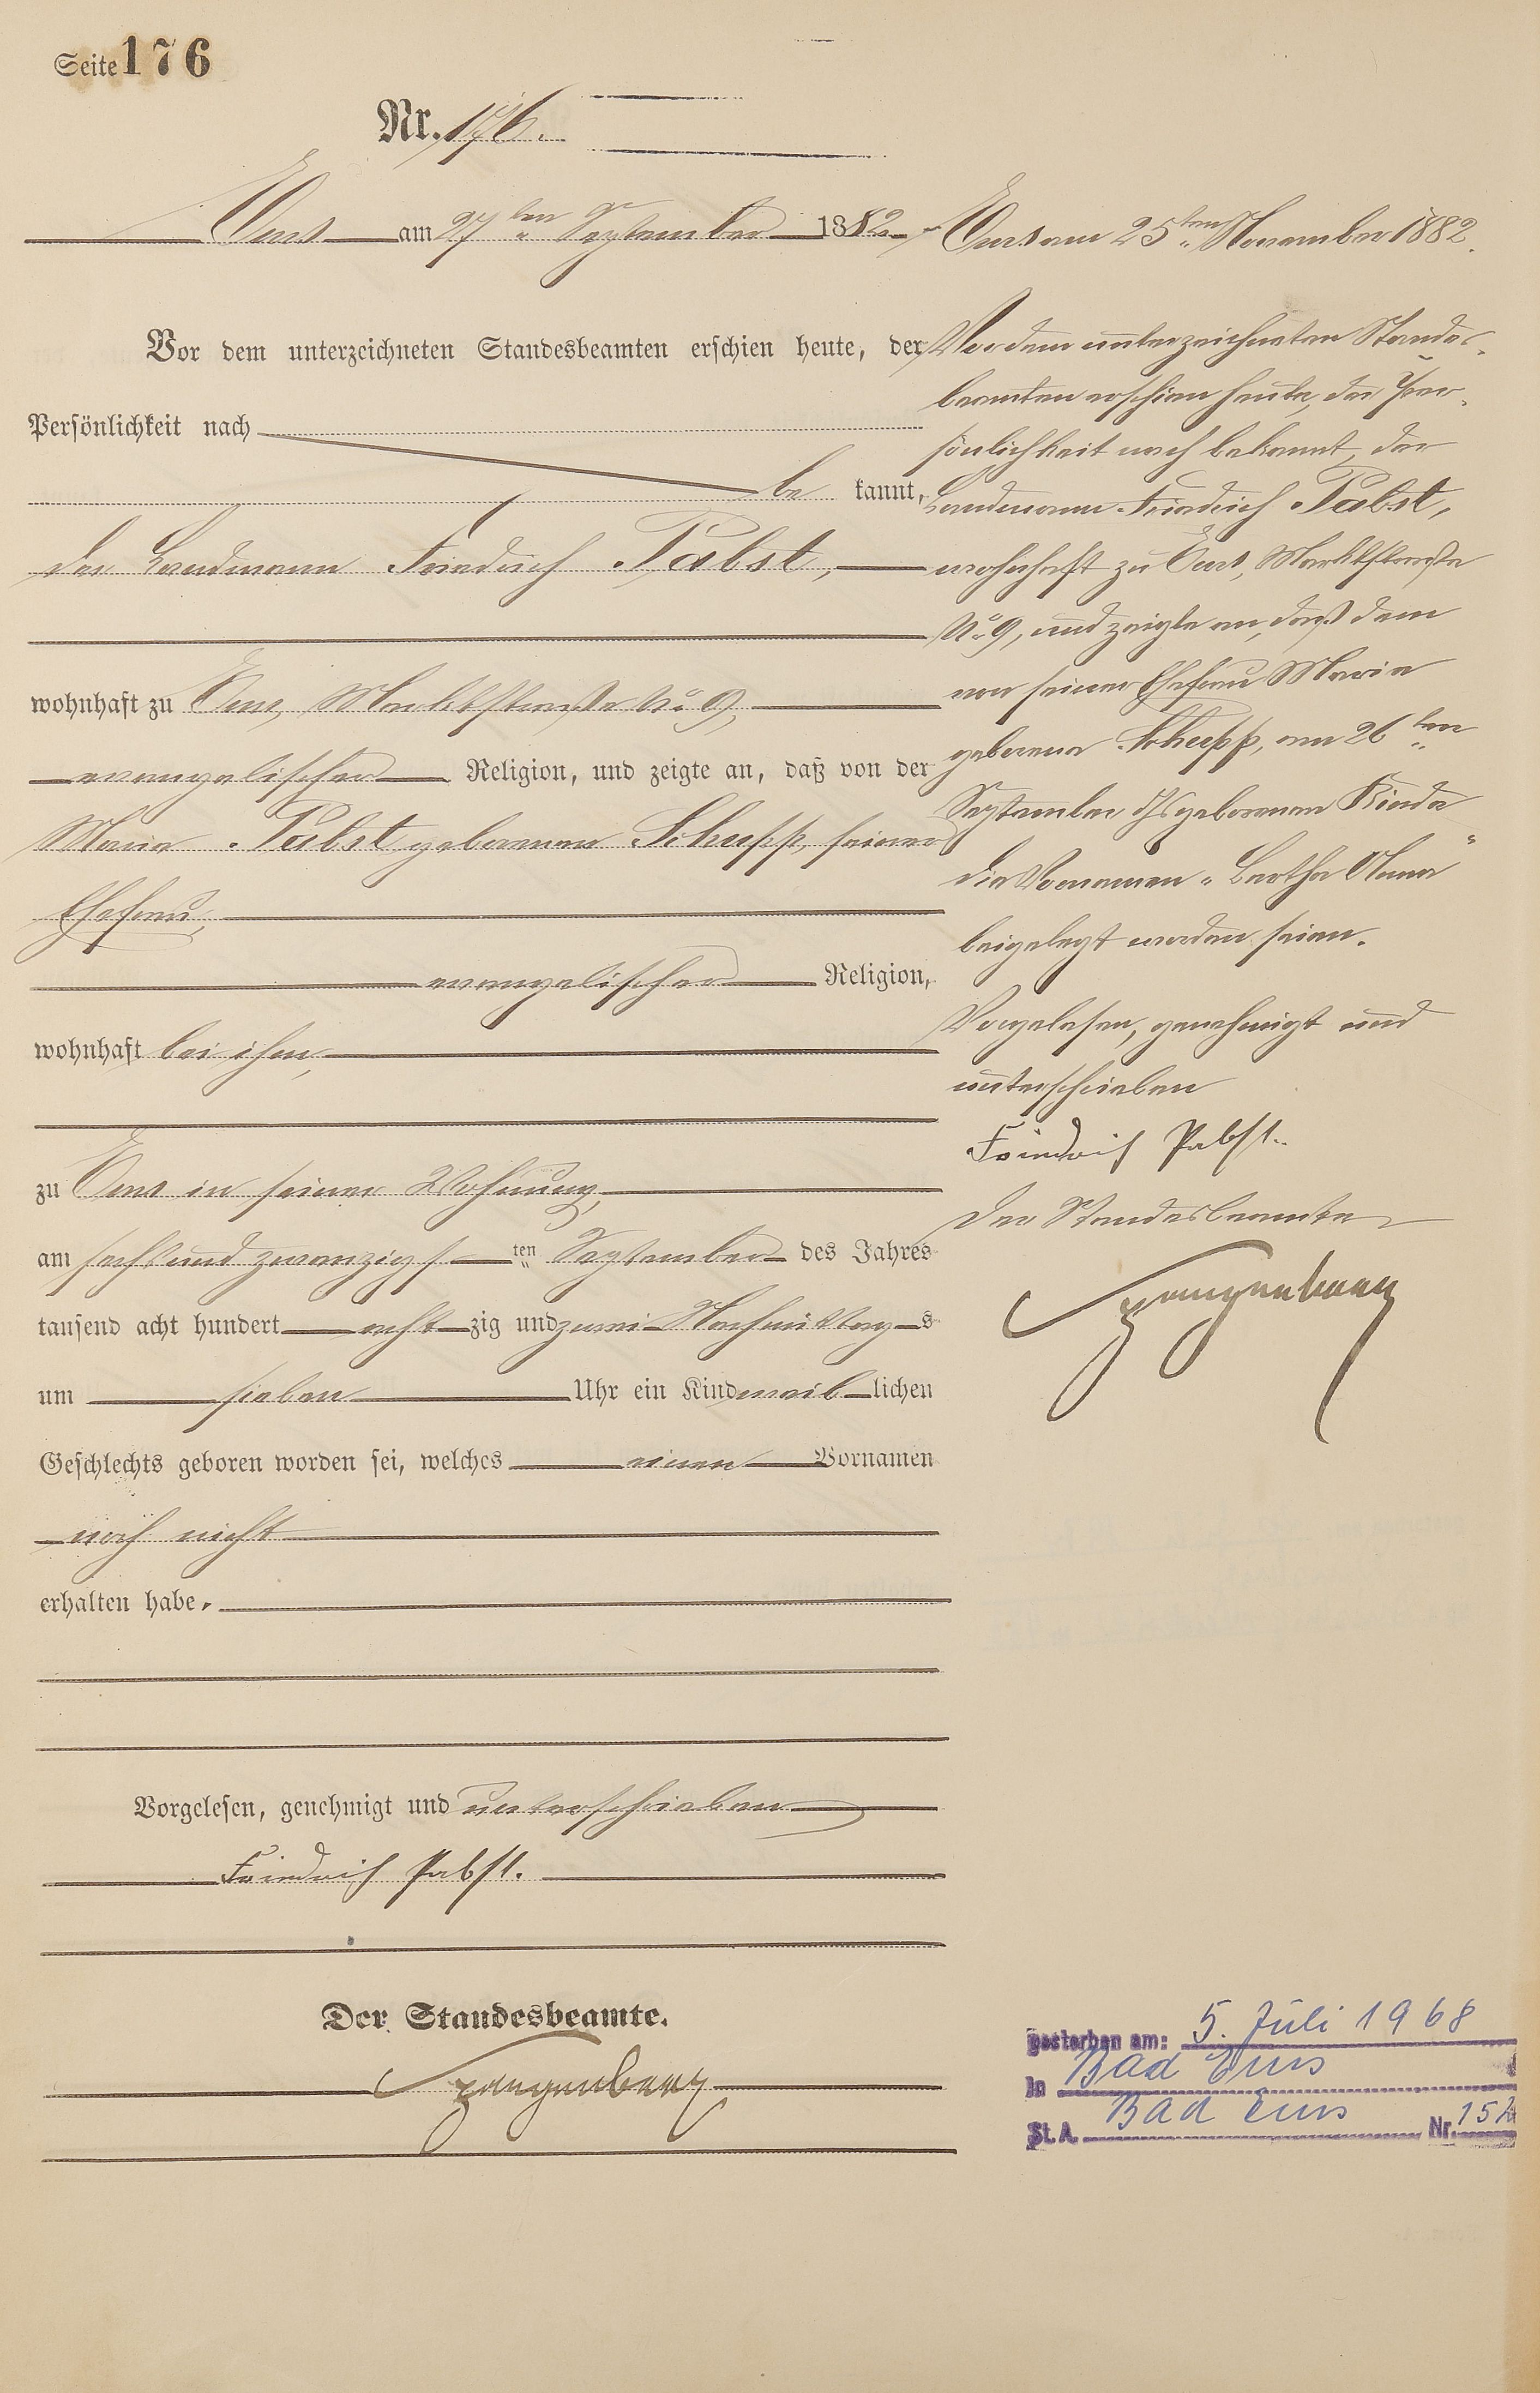 Seite 176
Nr. 176.
Ems am 27ten September 1882
Vor dem unterzeichneten Standesbeamten erschien heute, der
Persönlichkeit nach
be kannt,
der Landmann Friedrich Pabst,
wohnhaft zu Ems, Marktstraße No 9,
evangelischer Religion, und zeigte an, daß von der
Maria Pabst geborenen Schupp, seiner
Ehefrau,
evangelischer Religion,
wohnhaft bei ihm,
zu Ems in seiner Wohnung,
am sechs und zwanzigsten September des Jahres
tausend acht hundert acht zig und zwei Nachmittags
um sieben Uhr ein Kind weiblichen
Geschlechts geboren worden sei, welches einen Vornamen
noch nicht
erhalten habe.
Vorgelesen, genehmigt und unterschrieben
Friedrich Pabst.
Der Standesbeamte.
Spangenberg
Ems am 25ten November 1882.
Vor dem unterzeichneten Standes-
beamten erschien heute, der Per-
sönlichkeit nach bekannt, der
Landmann Friedrich Pabst,
wohnhaft zu Ems, Marktstraße
No 9, und zeigte an, daß dem
von seiner Ehefrau Maria
geborene Schupp, am 26ten
September geborenen Kinde
die Vornamen „Bertha Anna"
beigelegt worden seien.
Vorgelesen, genehmigt und
unterschrieben
Friedrich Pabst.
Der Standesbeamte
Spangenberg
gestorben am: 5. Juli 1968
in Bad Ems
St. A. Bad Ems Nr. 152